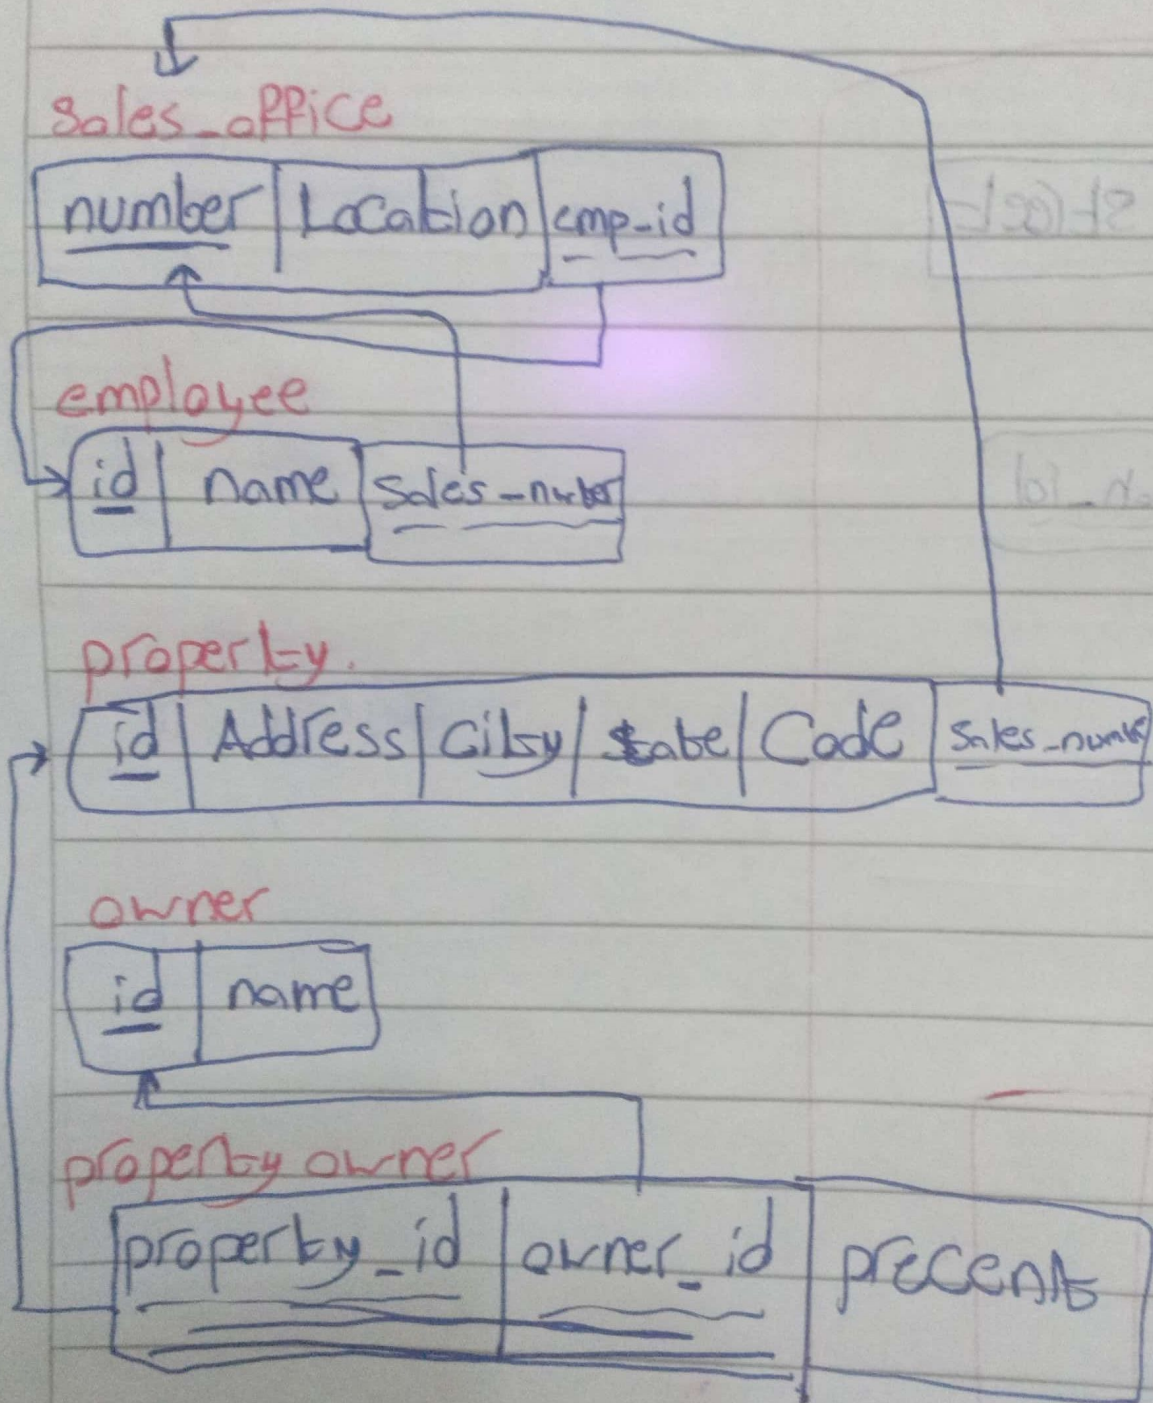 sales_office
number Location emp_id
employee
id name sales_number
property.
id Address City State Code sales_numbe
owner
id name
property owner
property_id owner_id precent